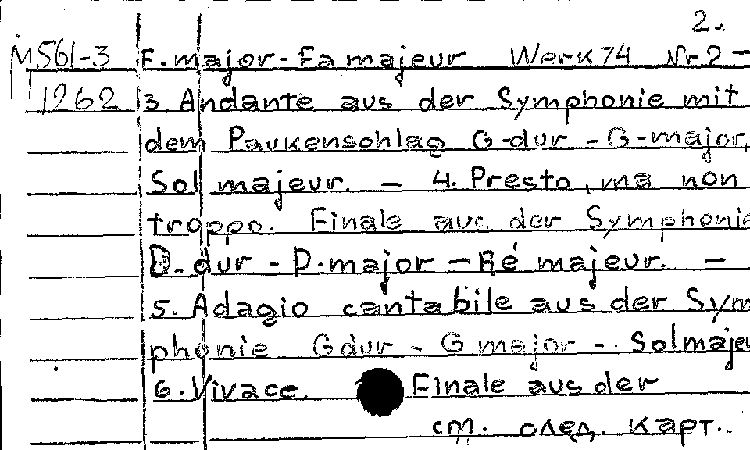 2.
M561-3 F. major - Fa majeur Werk 74 Nr 2 -
1262 3. Andante aus der Symphonie mit
dem Paukenschlag G-dur - G-major,
Sol majeur. - 4. Presto, ma non
troppo. Finale aus der Symphonie
D. dur - D. major - Ré majeur. -
5. Adagio cantabile aus der Sym
phonie G dur - G major - Sol majeu
6. Vivace. Finale aus der
см. след. карт.